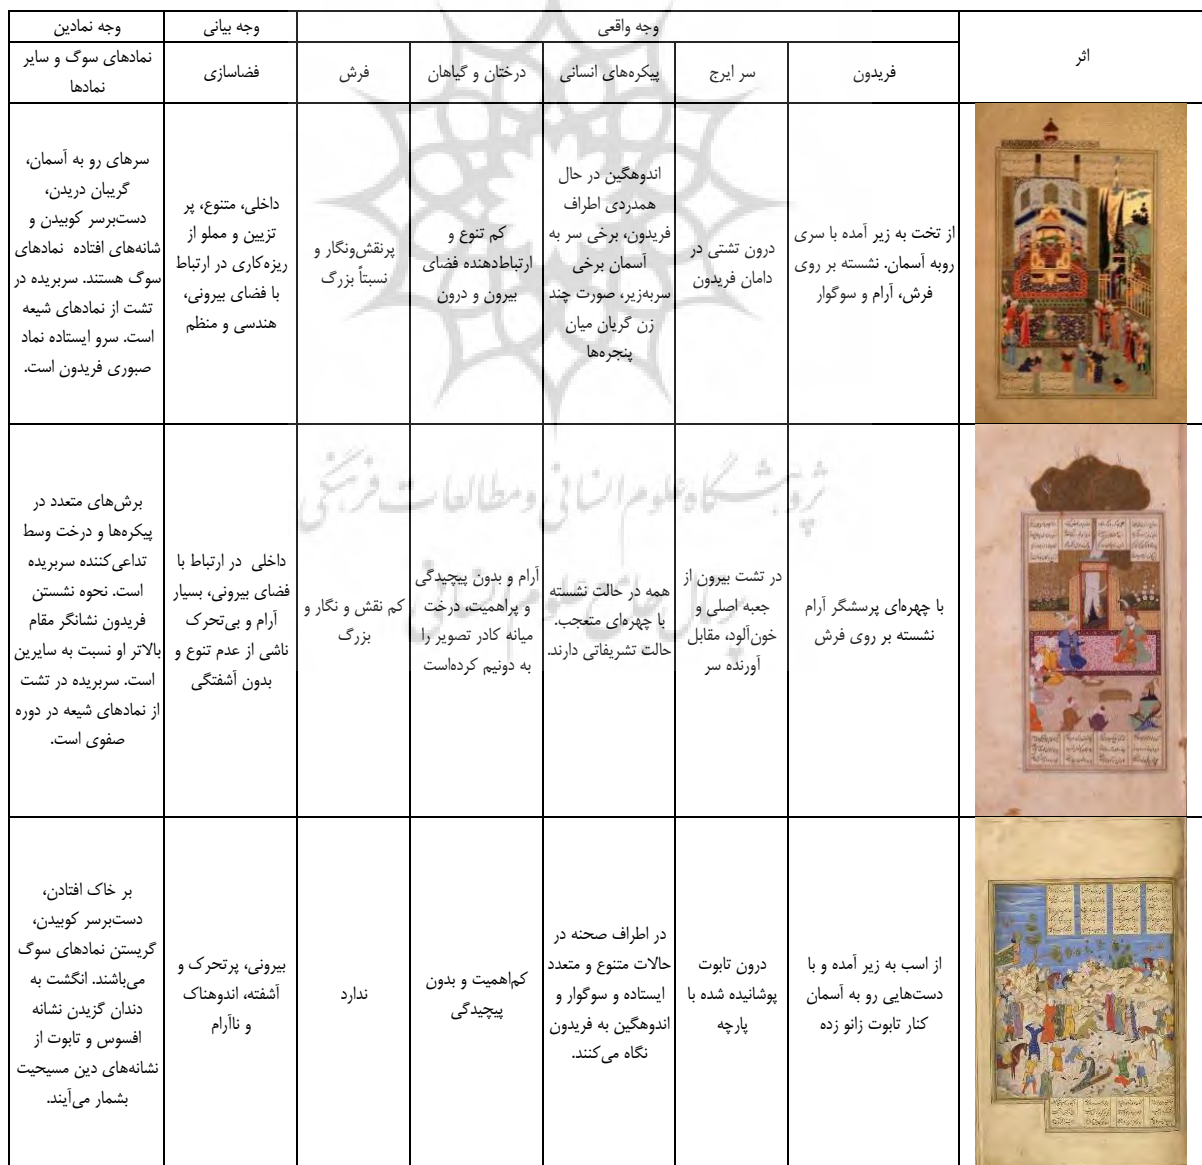 اثر
وجه واقعی
وجه بیانی
وجه نمادین
فریدون
سر ایرج
پیکره‌های انسانی
درختان و گیاهان
فرش
فضاسازی
نمادهای سوگ و سایر
نمادها
از تخت به زیر آمده با سری
روبه آسمان. نشسته بر روی
فرش، آرام و سوگوار
درون تشتی در
دامان فریدون
اندوهگین در حال
همدردی اطراف
فریدون، برخی سر به
آسمان برخی
سربه‌زیر، صورت چند
زن گریان میان
پنجره‌ها
کم تنوع و
ارتباط‌دهنده فضای
بیرون و درون
پرنقش‌ونگار و
نسبتاً بزرگ
داخلی، متنوع، پر
تزیین و مملو از
ریزه‌کاری در ارتباط
با فضای بیرونی،
هندسی و منظم
سرهای رو به آسمان،
گریبان دریدن،
دست‌برسر کوبیدن و
شانه‌های افتاده نمادهای
سوگ هستند. سربریده در
تشت از نمادهای شیعه
است. سرو ایستاده نماد
صبوری فریدون است.
با چهره‌ای پرسشگر آرام
نشسته بر روی فرش
در تشت بیرون از
جعبه اصلی و
خون‌آلود، مقابل
آورنده سر
همه در حالت نشسته
با چهره‌ای متعجب.
حالت تشریفاتی دارند.
آرام و بدون پیچیدگی
و پراهمیت، درخت
میانه کادر تصویر را
به دونیم کرده‌است
کم نقش و نگار و
بزرگ
داخلی در ارتباط با
فضای بیرونی، بسیار
آرام و بی‌تحرک
ناشی از عدم تنوع و
بدون آشفتگی
برش‌های متعدد در
پیکره‌ها و درخت وسط
تداعی‌کننده سربریده
است. نحوه نشستن
فریدون نشانگر مقام
بالاتر او نسبت به سایرین
است. سربریده در تشت
از نمادهای شیعه در دوره
صفوی است.
از اسب به زیر آمده و با
دست‌هایی رو به آسمان
کنار تابوت زانو زده
درون تابوت
پوشانیده شده با
پارچه
در اطراف صحنه در
حالات متنوع و متعدد
ایستاده و سوگوار و
اندوهگین به فریدون
نگاه می‌کنند.
کم‌اهمیت و بدون
پیچیدگی
ندارد
بیرونی، پرتحرک و
آشفته، اندوهناک
و ناآرام
بر خاک افتادن،
دست‌برسر کوبیدن،
گریستن نمادهای سوگ
می‌باشند. انگشت به
دندان گزیدن نشانه
افسوس و تابوت از
نشانه‌های دین مسیحیت
بشمار می‌آیند.
پژوهشگاه علوم انسانی و مطالعات فرهنگی
پرتال جامع علوم انسانی